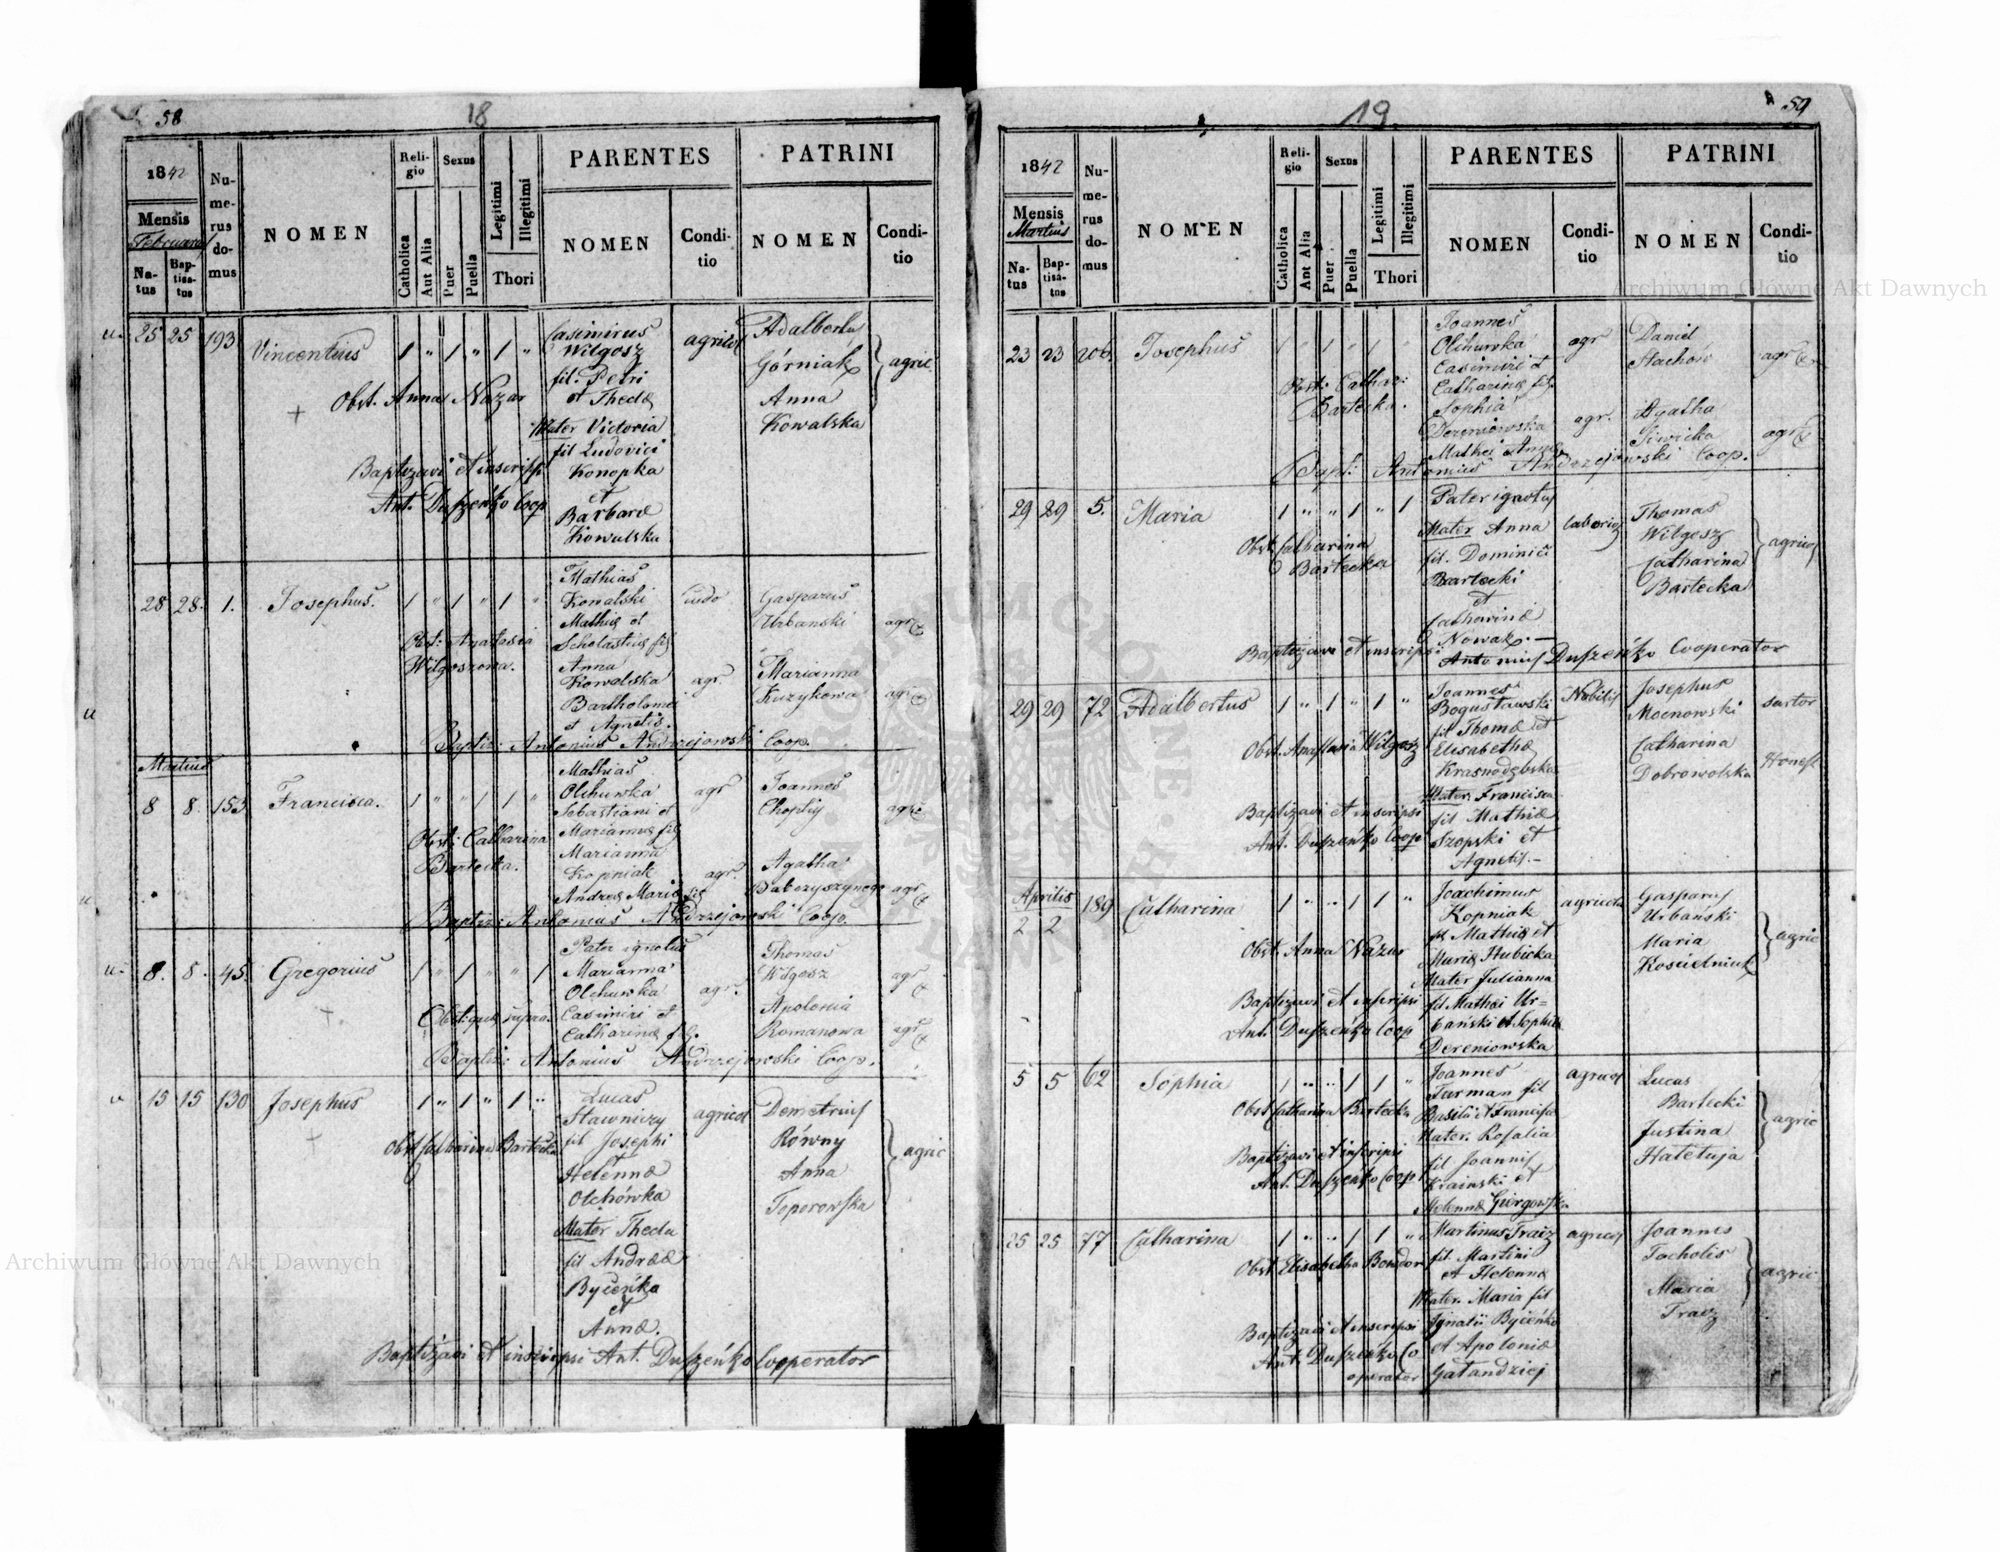 58
18
1842
Mensis
Februarij
Na-
tus
Bap-
tisa-
tus
Nu-
me-
rus
do-
mus
NOMEN
Reli-
gio
Catholica
Aut Alia
Sexus
Puer
Puella
Legitimi
Illegitimi
Thori
PARENTES
NOMEN
Condi-
tio
PATRINI
NOMEN
Condi-
tio
25 25 193 Vincentius 1 " 1 " 1 "
Casimirus
Wilgosz
fil. Petri
et Theclæ
Mater Victoria
fil Ludovici
Konopka
et
Barbaræ
Kowalska
agricol
Adalbertus
Górniak
Anna
Kowalska
agric.
Obst. Anna Nazar
Baptizavi et inscripsi
Ant. Duszeńko Coop
28 28. 1. Josephus. 1 " 1 " 1 "
Mathias
Kowalski
Mathiæ et
Scholasticæ fil
Anna
Kowalska
Bartholomei
et Agnetis.
agr.
Gasparus
Urbanski
Marianna
Kuzykowa
Obst: Anastasia
Wilgoszowa.
Baptiz: Antonius Andrzejowski Coop.
Martius
8 8. 153 Francisca. 1 " " 1 1 "
Mathias
Olchowka
Sebastiani et
Mariannæ fil
Marianna
Kopniak
Andreæ Mariæ fil
agr
agr.
Joannes
Choptiy
Agatha
Obst: Catharina
Bartecka.
Baptiz: Antonius Andrzejowski Coop.
8. 8. 45. Gregorius 1 " 1 " " 1
Pater ignotus
Marianna
Olchowka
Casimiri et
Catharinæ f.
agr.
Thomas
Wilgosz
Apolonia
Romanowa
Obst: quæ supra.
Baptiz: Antonius Andrzejowski Coop.
15 15 130 Josephus 1 " 1 " 1 "
Lucas
Stawniczy
fil Josephi
et
Helennæ
Olchówka
Mater Thecla
fil Andreæ
Byćeńko
et
Annæ.
agricol
Demetrius
Równy
Anna
Toporowska
agric
Obst Catharina Bartecka
Baptizavi et inscripsi Ant. Duszeńko Cooperator
59
19
1842
Mensis
Martius
Na-
tus
Bap-
tisa-
tus
Nu-
me-
rus
do-
mus
NOMEN
Reli-
gio
Catholica
Aut Alia
Sexus
Puer
Puella
Legitimi
Illegitimi
Thori
PARENTES
NOMEN
Condi-
tio
PATRINI
NOMEN
Condi-
tio
23 23 206. Josephus 1 " 1 " 1 "
Joannes
Olchowka
Casimiri et
Catharinæ fil.
Sophia
Dereniowska
Mathei Annæ
agr
agr.
Daniel
Stachów
Agatha
Siwicka
Obst: Cathar:
Bartecka.
Bapt: Antonius Andrzejowski Coop.
29 29 5. Maria 1 " " 1 " 1
Pater ignotus
Mater Anna
fil. Dominici
Bartecki
et
Catharinæ
Nowak.—
Thomas
Wilgosz
Catharina
Bartecka
agricol
Obst Catharina
Bartecka
Baptizavi et inscripsi
Antonius Duszeńko Cooperator
29 29 72 Adalbertus 1 " 1 " 1 "
Joannes
Bogusławski
fil Thomæ et
Elisabethæ
Krasnodzbska
Mater. Francisca
fil Mathiæ
Szopski et
Agnetis.—
Nobilis
Josephus
Mocnowski
Catharina
Dobrowolska
sartor
Honest
Obst. Anastasia Wilgosz
Baptizavi et inscripsi
Ant. Duszeńko Coop
Aprilis
2 2 189 Catharina 1 " " 1 1 "
Joachimus
Kopniak
fil Mathiæ et
Mariæ Hubicka
Mater Julianna
fil Mathæi Ur=
bański et Sophiæ
Dereniowska
agricola
Gasparus
Urbanski
Maria
Kościelniak
agric
Obst Anna Nazar
Baptizavi et inscripsi
Ant. Duszeńko Coop
5 5 62 Sophia 1 " " 1 1 "
Joannes
Furman fil
Basilii et Franciscæ
Mater. Rosalia
fil Joannis
Krainski et
Helennæ Giergowska
agricol
Lucas
Bartecki
Justina
Hałetuja
agric
Obst Catharina Bartecka
Baptizavi et inscripsi
Ant. Duszeńko Coop
25 25 77 Catharina 1 " " 1 1 "
Martinus Tracz
fil. Martini
et Helennæ
Mater. Maria fil
Ignatii Byćeńko
et Apoloniæ
Gałandziej
agricol
Joannes
Tacholis
Maria
Tracz
agric
Obst Elisabetha Bondar
Baptizavi et inscripsi
Ant. Duszeńko Co
operator
Archiwum Główne Akt Dawnych
Archiwum Główne Akt Dawnych